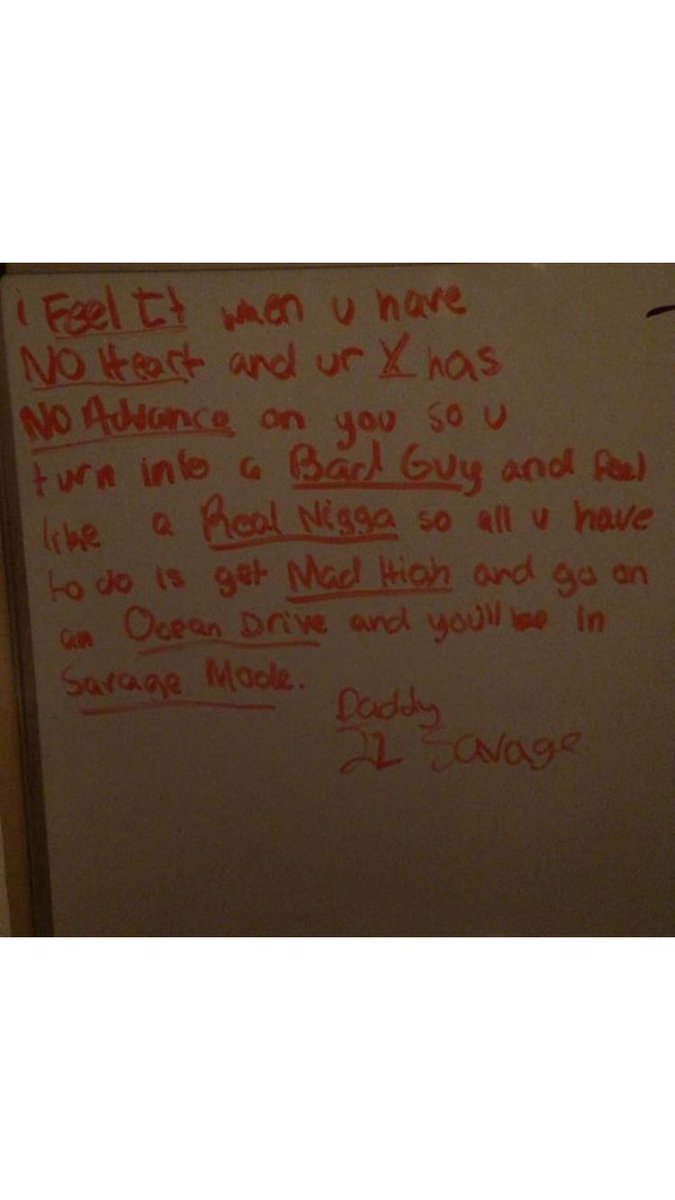 i Feel It when u have
NO Heart and ur X has
NO Advance on you so u
turn into a Bad Guy and feel
like a Real Nigga so all u have
to do is get Mad High and go on
an Ocean Drive and you'll be in
Savage Mode.
Daddy
21 Savage